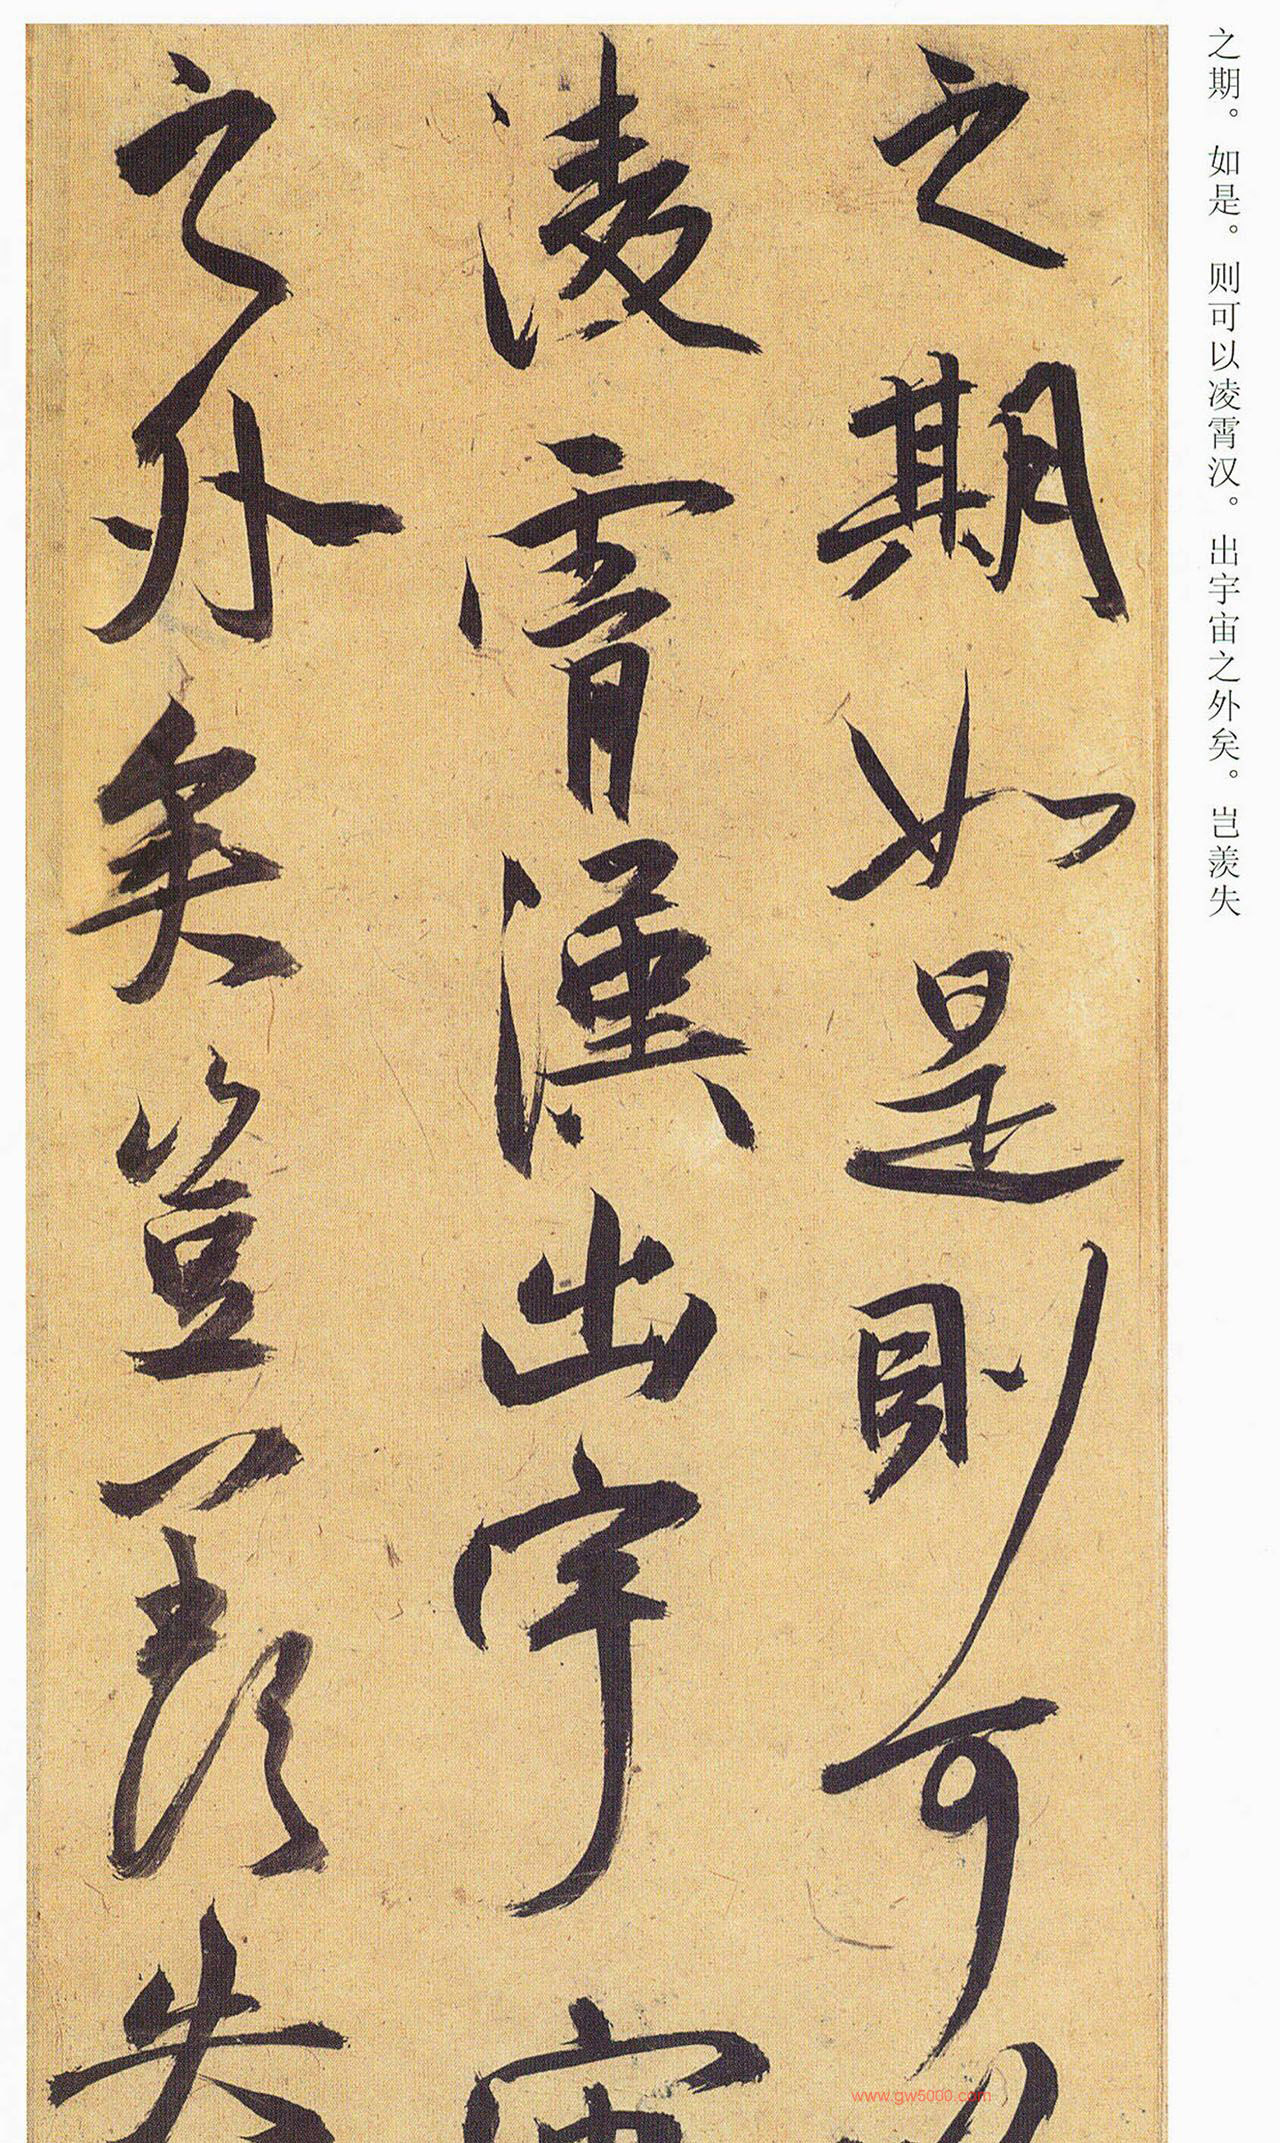 之期。如是。则可以凌霄汉。出宇宙之外矣。岂羡失
之期如是則可以
凌霄漢出宇宙
之外矣豈羨失
www.gw5000.com